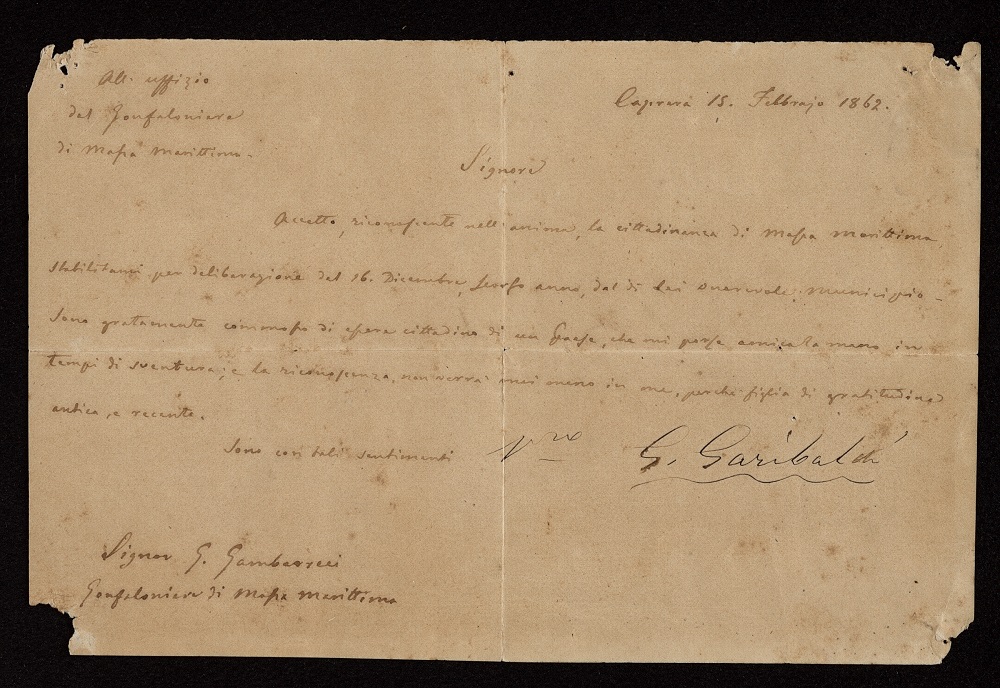 All' uffizio
del Gonfaloniere
di Massa Marittima.
Caprera 15. Febbrajo 1862.
Signore
Accetto, riconoscente nell'anima, la cittadinanza di Massa Marittima,
stabilitami per deliberazione del 16. Dicembre, scorso anno, dal di lei onorevole Municipio -
Sono gratamente commosso di essere cittadino di un Paese, che mi porse amicata mano in
tempi di sventura; e la riconoscenza non verrai mai meno in me, perchè figlia di gratitudine
antica, e recente.
Sono con tali sentimenti
Vro
G. Garibaldi
Signor G.
Gonfaloniere di Massa Marittima